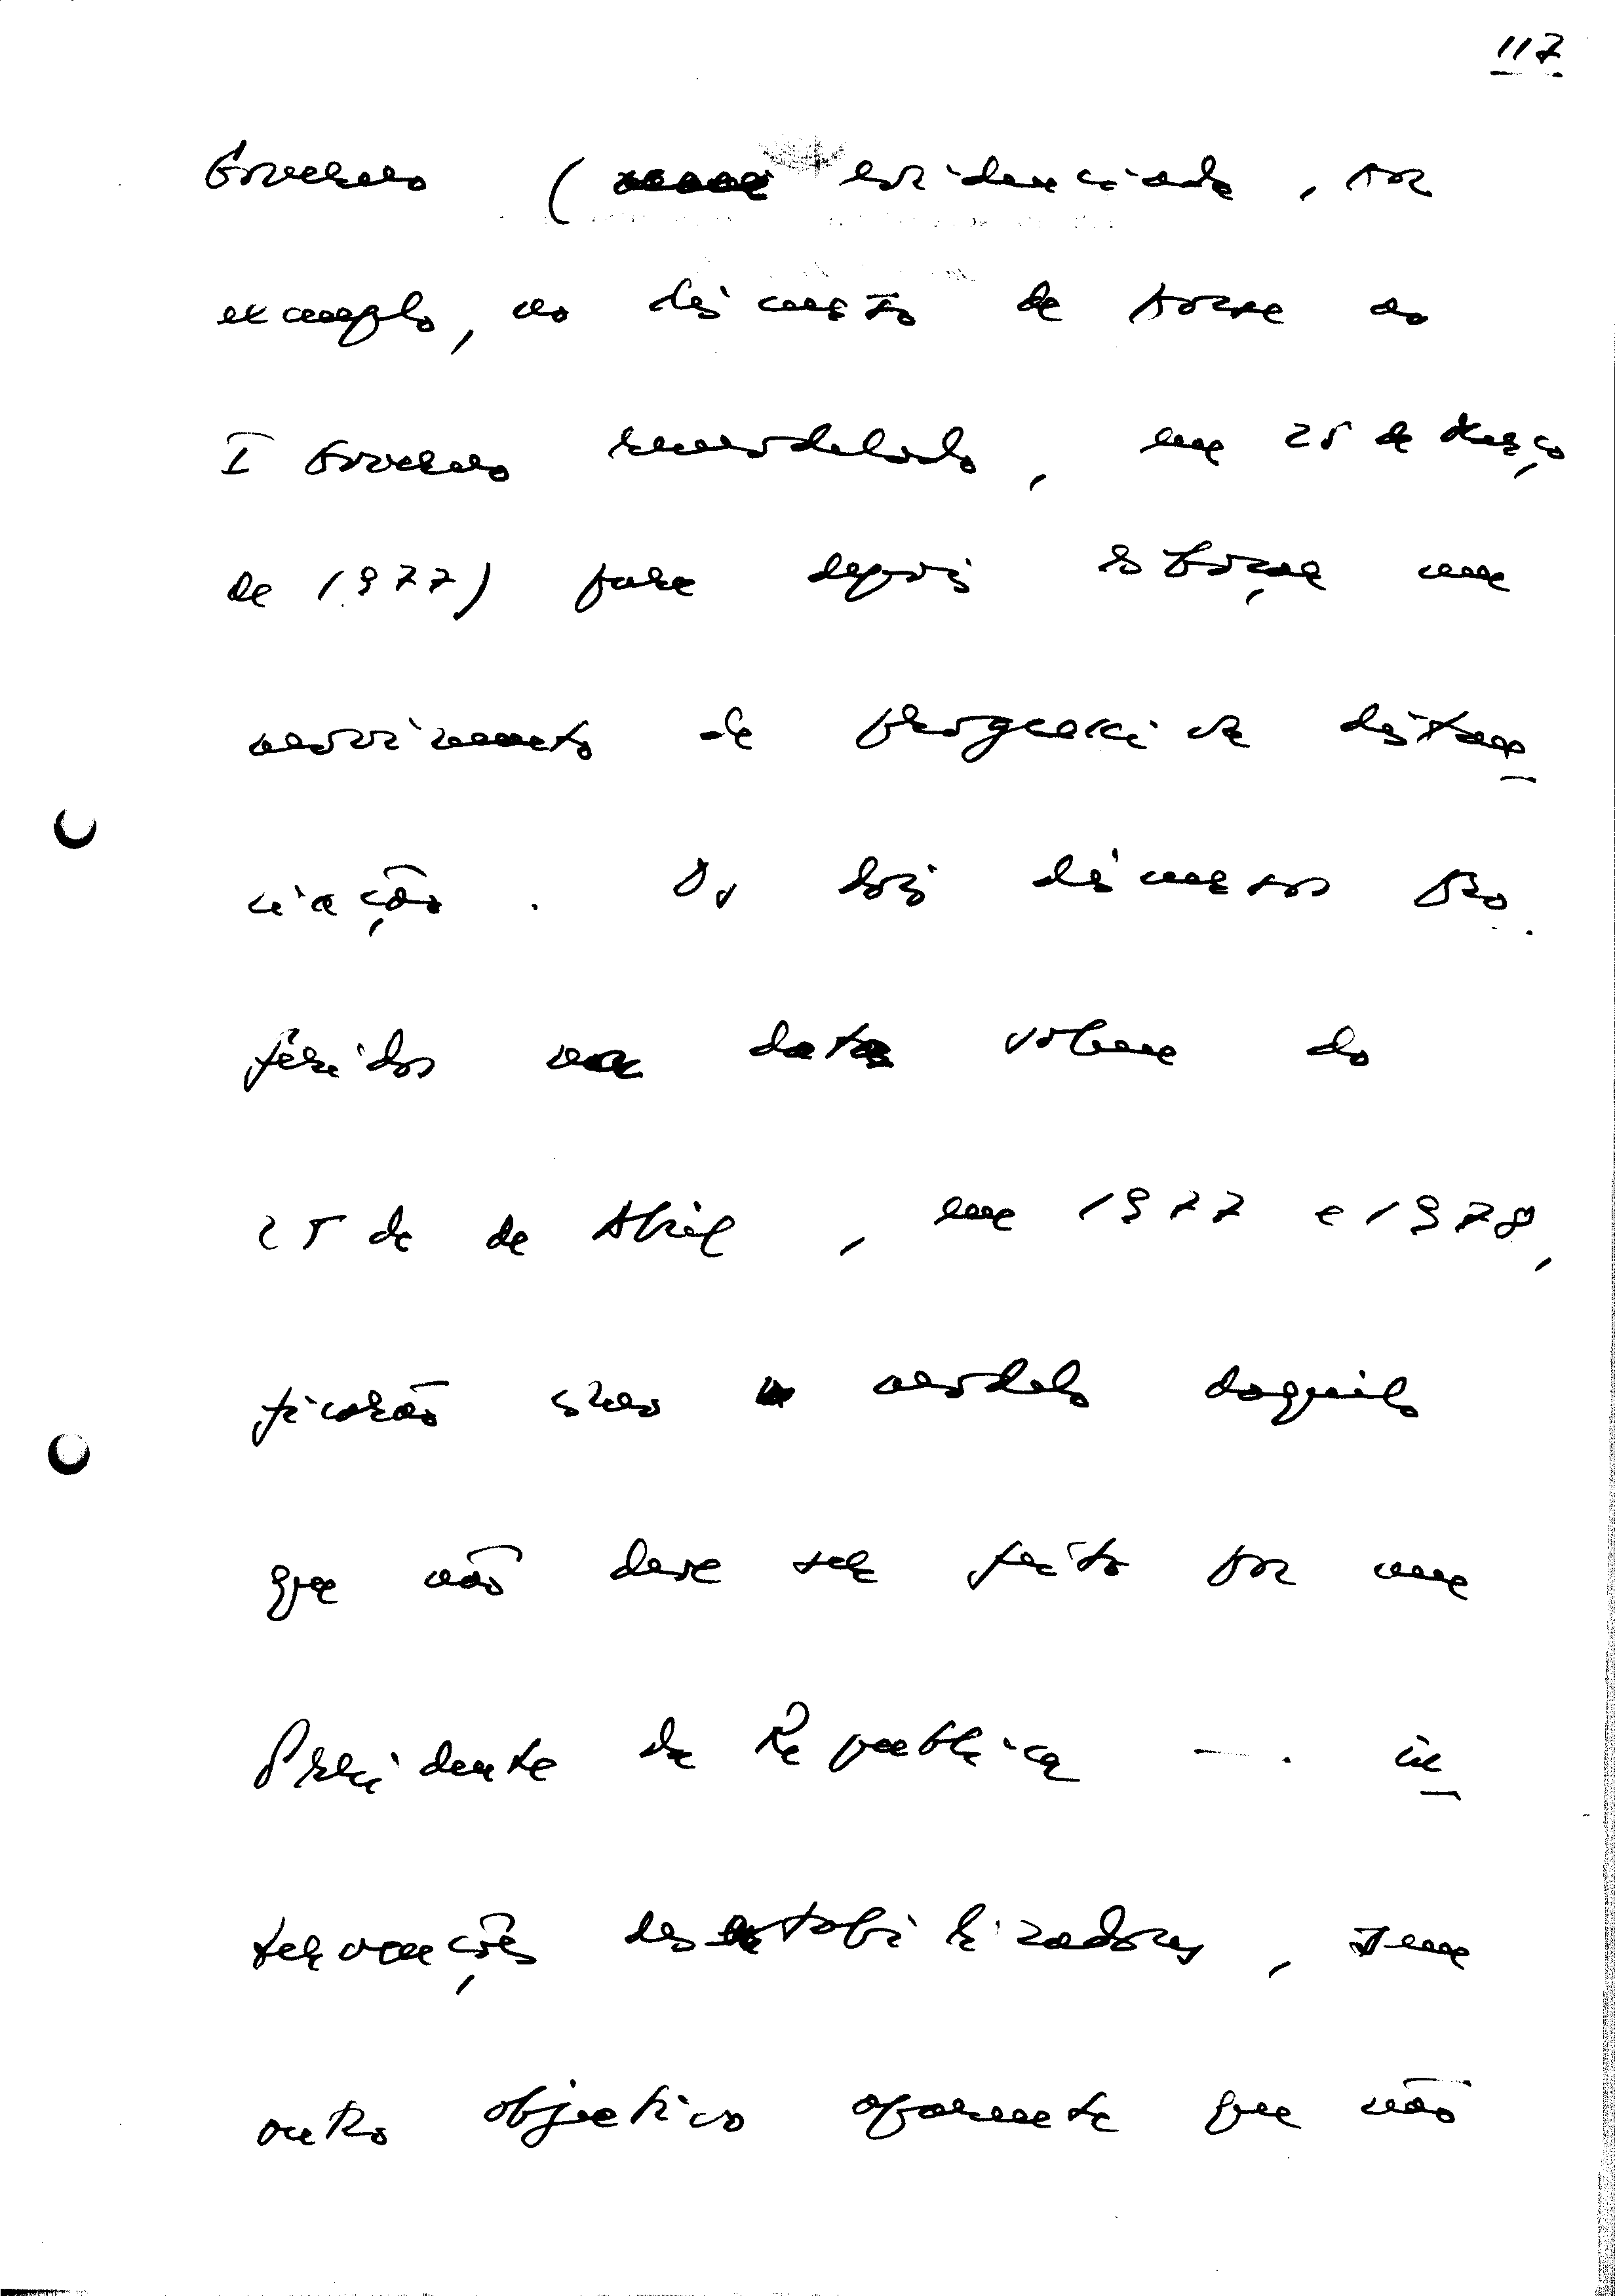 117
Governo ( evidenciada, por
exemplo, no discurso de posse ao
I Governo remodelado, em 25 de Março
de 1977) para depois esboçar um
movimento de progressiva distan
ciação. Os dois discursos pro
feridos na data volume do
25 de de Abril, em 1977 e 1978,
ficarão como modelo daquilo
que não deve ser feito por um
Presidente da República — in
tervenções destabilizadoras, sem
outro objectivo aparente que não